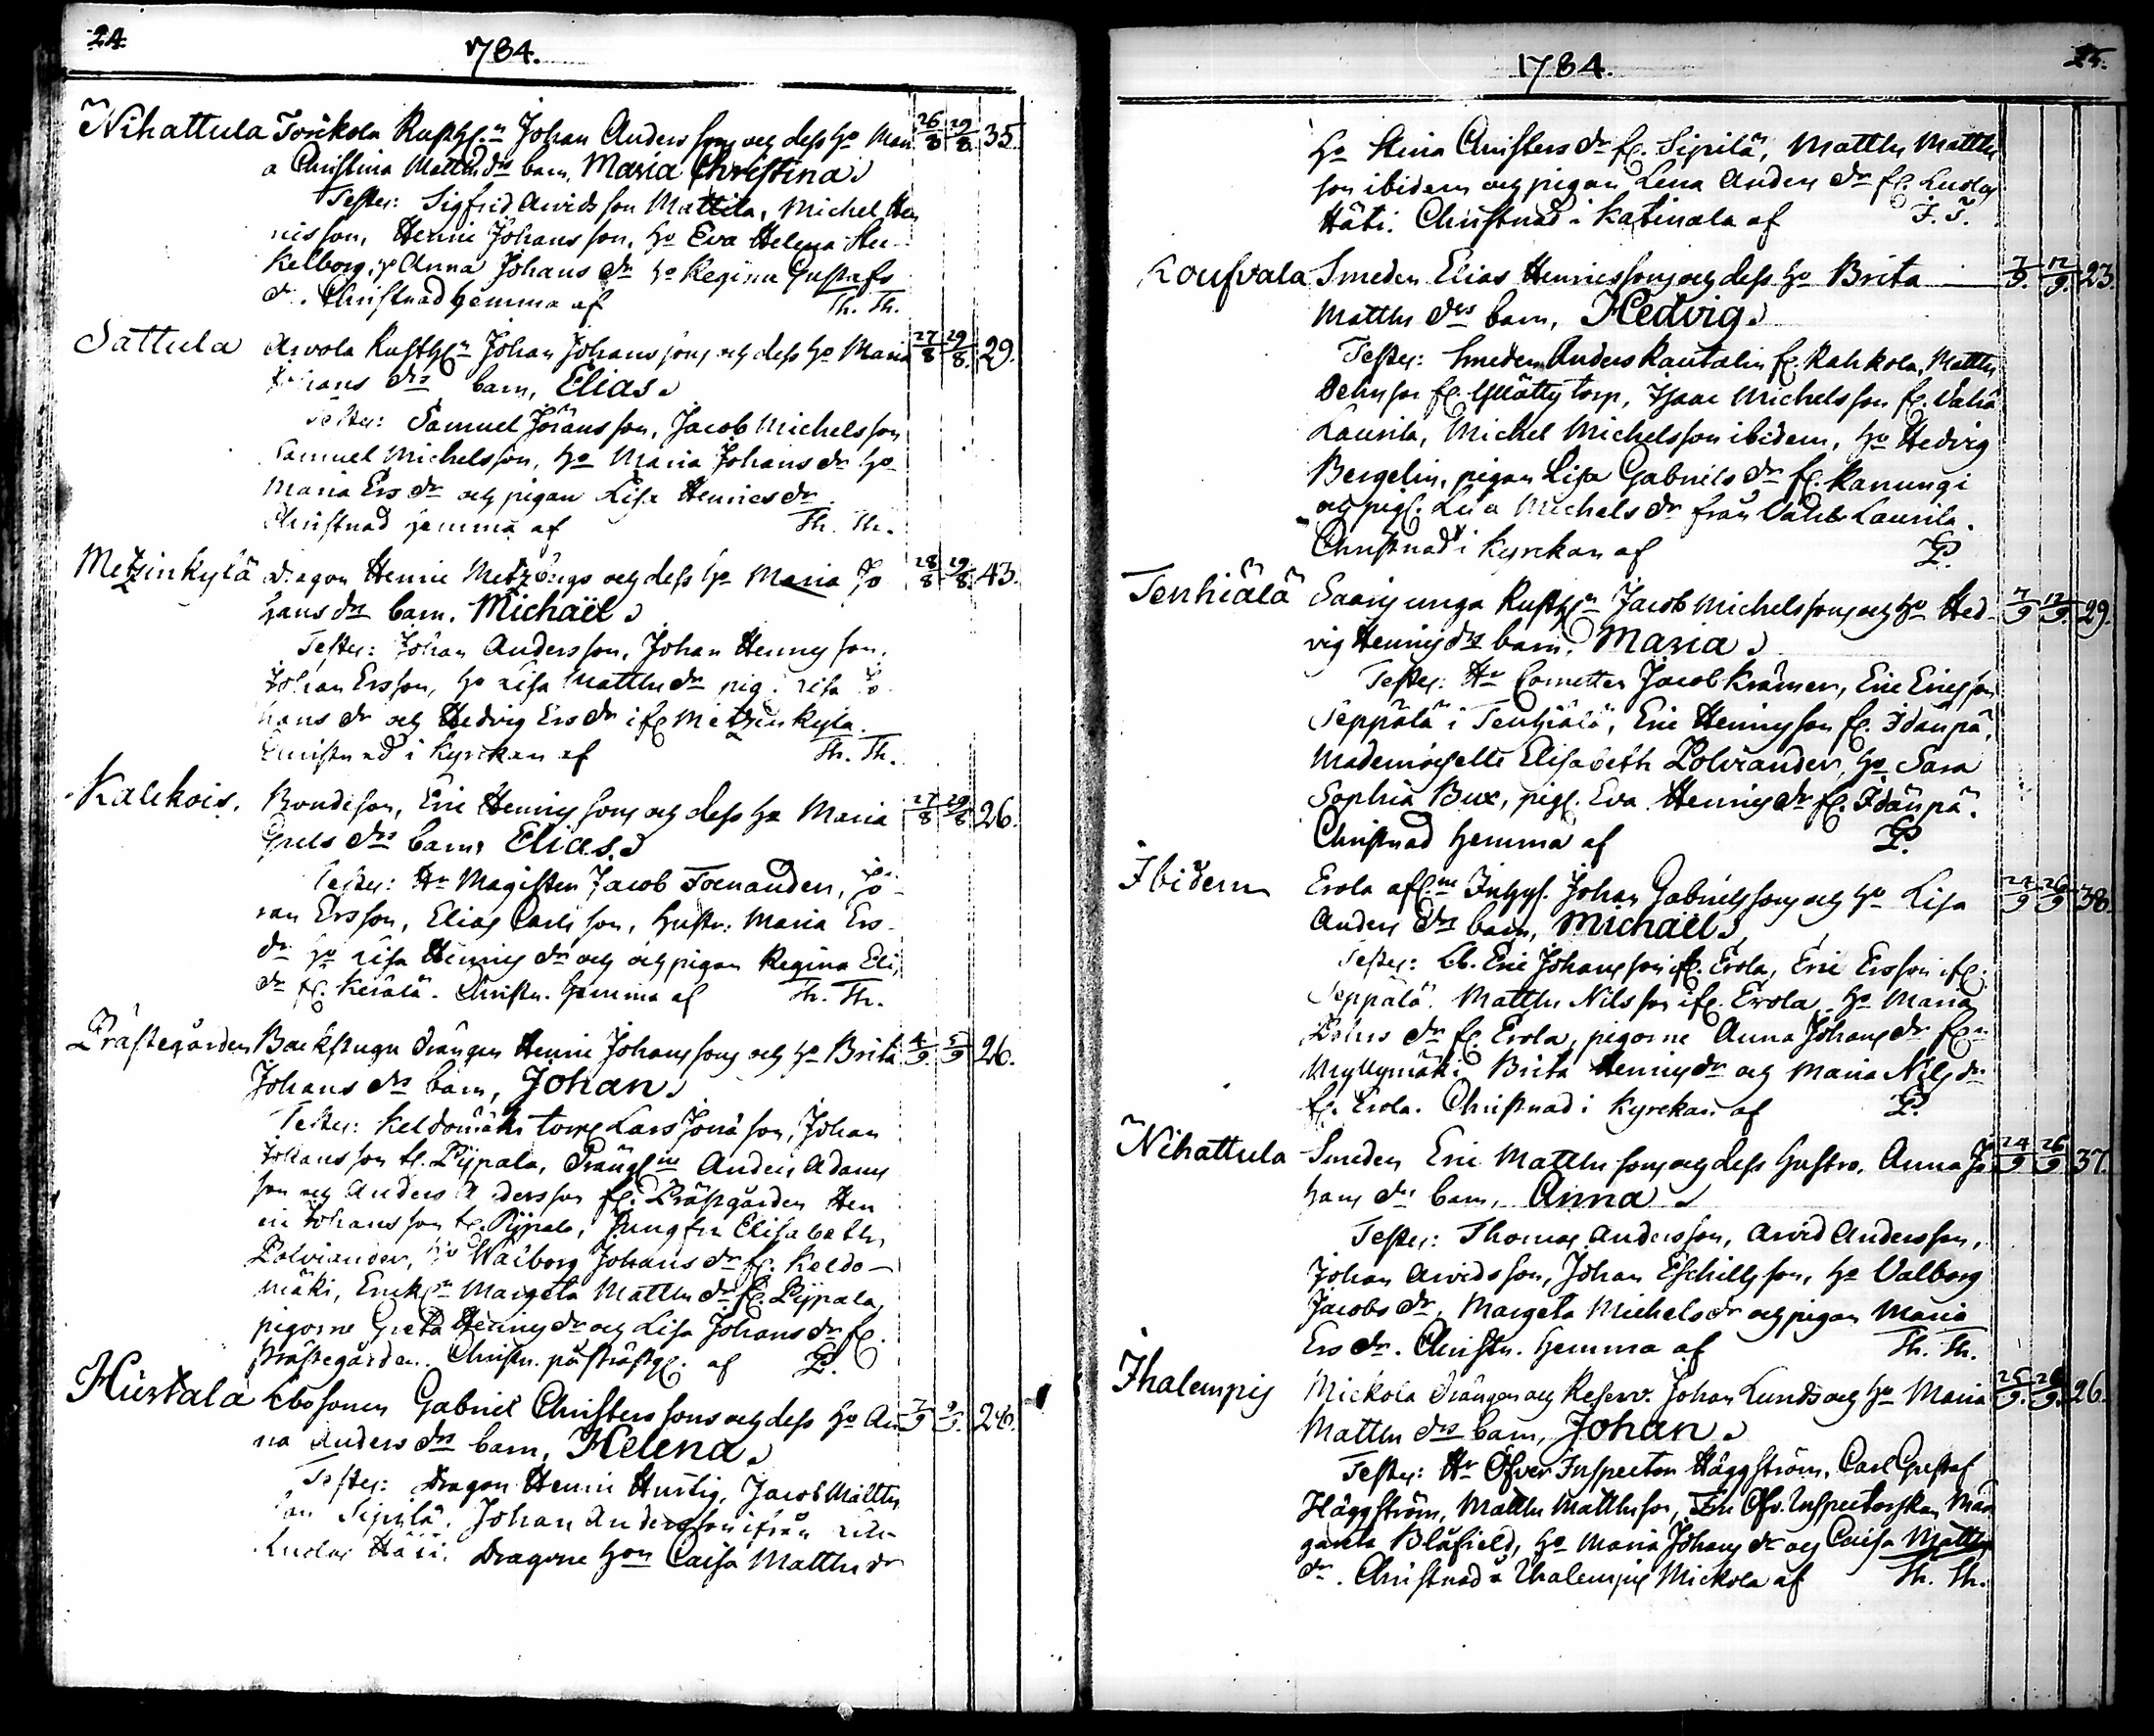 24.
1784.
Nihattula Torikola Rusth. Johan Andersson och dess ho Mari 26/8 29/8 35.
a Christina Matths drs barn, Maria Christina
Testes: Sigfrid Arvidsson Mattila, Michel Hen
ricsson, Henric Johansson, ho Eva Helena
kelborg, p. Anna Johans dr ho Regina Gustafs
dr. Christnad hemma af Th. Th.
Sattula Arvola Rusth. Johan Johansson och dess ho Maria 27/8 29/8 29.
Johans drs barn, Elias
Testes: Samuel Jöransson, Jacob Michelsson
Samuel Michelsson, ho Maria Johans dr ho
Maria Ers dr och pigan Lisa Henrics dr
Christnad hemma af Th. Th.
Metzinkylä Dragon Henric Metzbergs och dess ho Maria Jo 28/8 29/8 43.
hans drs barn, Michaël
Testes: Johan Andersson, Johan Henricsson,
Johan Ersson, ho Lisa Matths dr pig. Lisa Jo
hans dr och Hedvig Ers dr if. Metzinkylä.
Christnad i Kyrckan af Th. Th.
Kalckois. Bondeson, Eric Henricssons och dess ho Maria 27/8 29/8 26.
Grels drs barn Elias
Testes: Hr Magister Jacob Foenander, Jö
ran Ersson, Elias Carlsson, hustr. Maria Ers
dr ho Lisa Henrics dr och och pigan Regina Eli,
dr f. Kerälä. Christn. hemma af Th. Th.
Prästegården Backstugu drängen Henric Johanssons och ho Brita 4/9 5/9 26.
Johans drs barn, Johan
Testes: Keldomäki torp Lars Jonasson, Johan
Johansson f. Pijpala, Drängne Anders Adams
son och Anders Andersson f. Prästgården Hen
ric Johansson f. Pijpala, Jungfru Elisabeth
Polviander, ho Walborg Johans dr f. Keldo-
mäki, Enk. Margeta Matths dr f. Pijpala,
pigorne Greta Henrics dr och Lisa Johans dr f.
Prästegården. Christn. på Prästg. af P.
Hurtala Ebosonen Gabriel Christerssons och dess ho An 7/9 9/9 26.
na Anders drs barn, Helena
Testes: Dragon Henric Hurtig, Jacob Matths
son Sipilä. Johan Andersson ifrån
Ludas Häti. Dragone hon Caisa Matths dr
1784.
25.
ho Stina Christers dr f. Sipilä, Matths Matths
son ibidem och pigan Lena Anders dr f. Ludas
Häti. Christnad i Katinala af J. T.
Koufvala Smeden Elias Henricssons och dess ho Brita 7/9. 12/9. 23.
Matths drs barn, Hedvig
Testes: Smeden Anders Rautalin f. Rahkola, Matths
son f. torp, Isaac Michelsson f. Vaha
Laurila, Michel Michelsson ibidem, ho Hedvig
Bergelin, pigan Lisa Gabriels dr f. Kanungi
och pig. Michels dr från Vaha Laurila.
Christnad i Kyrckan af P.
Tenhiälä Rusth. Jacob Michelssons och ho Hed- 7/9 12/9. 29.
vig Henrics drs barn, Maria
Testes: Hr Cornetten Jacob Krämer, Eric Ericsson
Seppälä i Tenhiälä, Eric Henricsson f. Idänpä,
Mademoiselle Elisabeth Polviander, ho Sara
Sophia Bux, pig. Eva Henrics dr f. Idänpä.
Christnad hemma af P.
Ibidem Erola Inhys. Johan Gabrielssons och ho Lisa 24/9 26/9 38.
Anders drs barn, Michaël
Testes: Lb. Eric Johansson if. Erola, Eric Ersson if.
Seppälä. Matths Nilsson if. Erola, ho Maria
dr f. Erola, pigorne Anna Johans dr f.
Myllymäki Brita Henrics dr och Maria Nils dr
f. Erola. Christnad i Kyrckan af P.
Nihattula Smeden Eric Matthssons och dess hustro, Anna Jo 24/9 26/9 37.
hans drs barn, Anna
Testes: Thomas Andersson, Arvid Andersson,
Johan Arvidsson, Johan Eschillsson, ho Valborg
Jacobs dr, Margeta Michels dr och pigan Maria
Ers dr. Christn. hemma af Th. Th.
Ihalempis Mickola drängen och Reserv. Johan Lunds och ho Maria 25/9. 26/9. 26.
Matths drs barn, Johan
Testes: Hr Öfver Inspector Häggström, Carl Gustaf
Häggström, Matths Matthsson, Fru Öfv. Inspectorskan Mar
gareta Blåfield, ho Maria Johans dr och Caisa Matths
dr. Christnad i Ihalempis Mickola af Th. Th.